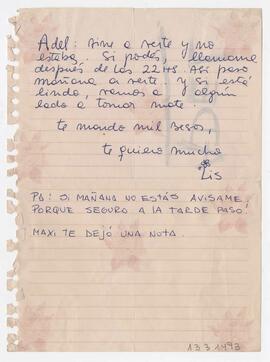 Adel: vine a verte y no
estaba. Si podés, llamame
después de las 22 HS. Así paso
mañana a verte. Y si está
lindo, vamos a algún
lado a tomar mate.
te mando mil besos,
te quiero mucho
Lis
PD: SI MAÑANA NO ESTÁS AVISAME
PORQUE SEGURO A LA TARDE PASO!
MAXI TE DEJÓ UNA NOTA.
13 3 1493